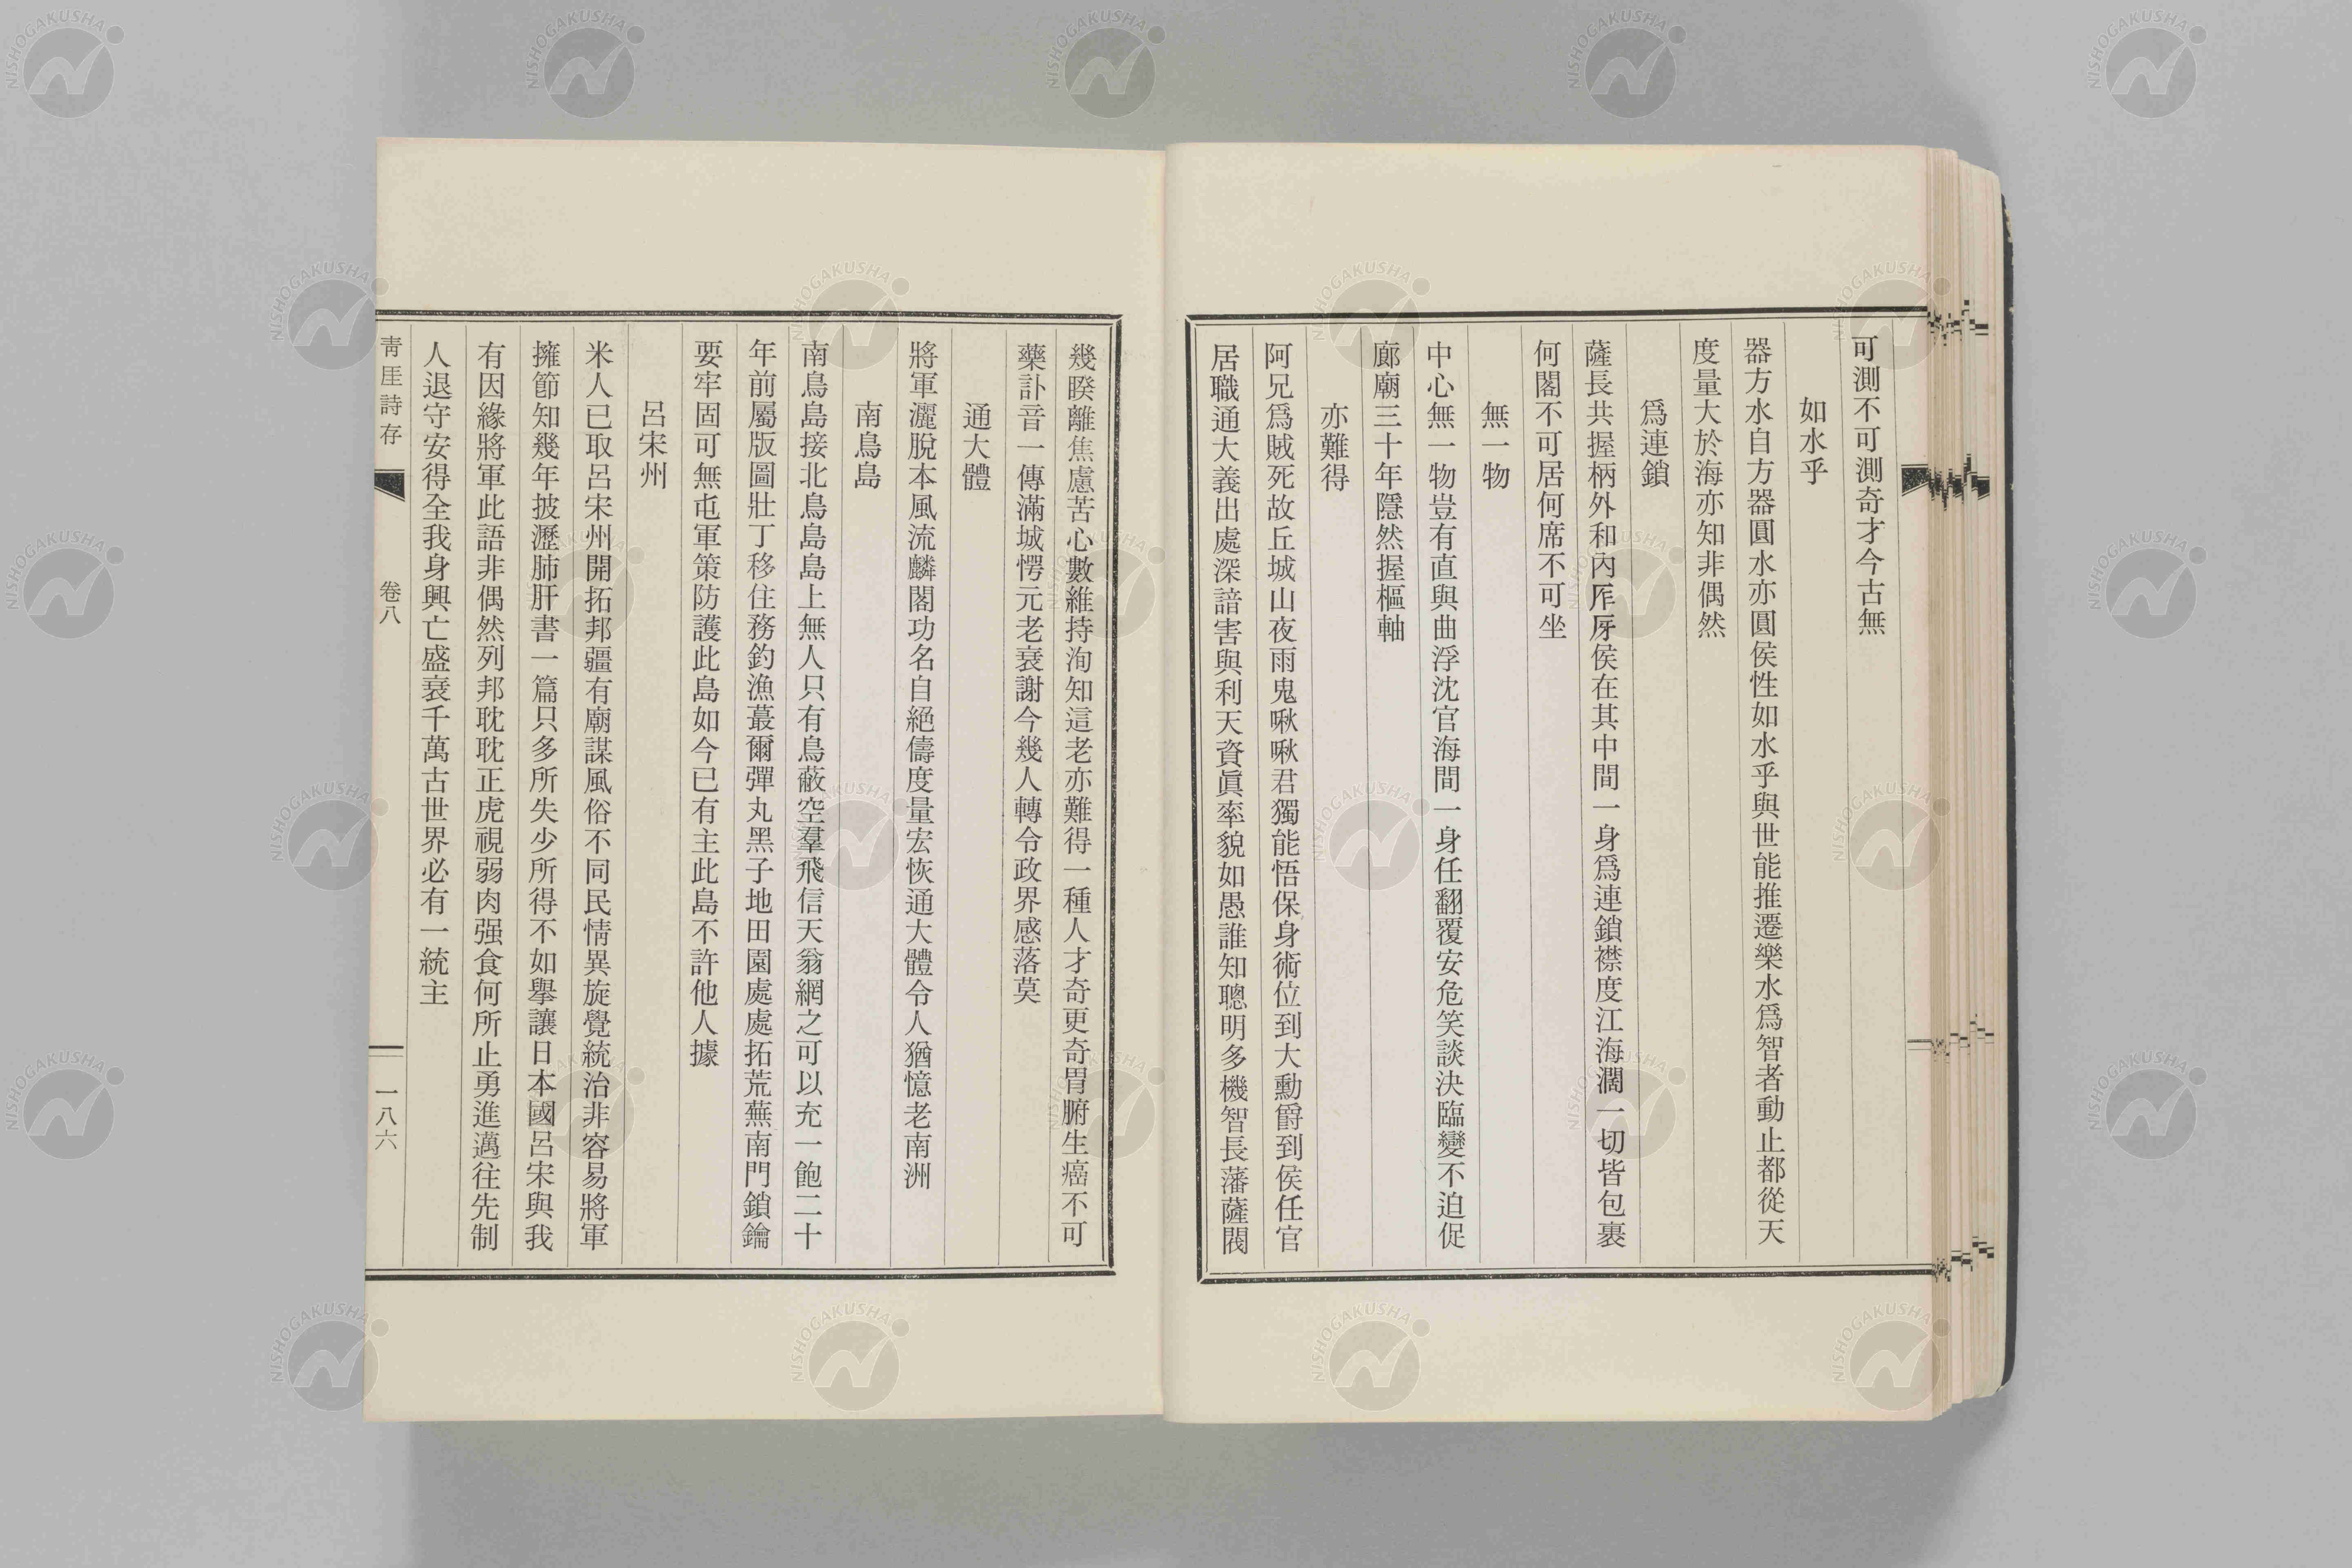 可測不可測奇才今古無
如水乎
器方水自方器圓水亦圓侯性如水乎與世能推遷樂水爲智者動止都從天
度量大於海亦知非偶然
爲連鎖
薩長共握柄外和內厈厊侯在其中間一身爲連鎖襟度江海濶一切皆包裹
何閣不可居何席不可坐
無一物
中心無一物豈有直與曲浮沈官海間一身任翻覆安危笑談決臨變不迫促
廊廟三十年隱然握樞軸
亦難得
阿兄爲賊死故丘城山夜雨鬼啾啾君獨能悟保身術位到大勳爵到侯任官
居職通大義出處深諳害與利天資眞率貌如愚誰知聰明多機智長藩薩閥
幾睽離焦慮苦心數維持洵知這老亦難得一種人才奇更奇胃腑生癌不可
藥訃音一傳滿城愕元老衰謝今幾人轉令政界感落莫
通大體
將軍灑脫本風流麟閣功名自絕儔度量宏恢通大體令人猶憶老南洲
南鳥島
南鳥島接北鳥島島上無人只有鳥蔽空羣飛信天翁網之可以充一飽二十
年前屬版圖壯丁移住務釣漁蕞爾彈丸黑子地田園處處拓荒蕪南門鎖鑰
要牢固可無屯軍策防護此島如今已有主此島不許他人據
呂宋州
米人已取呂宋州開拓邦疆有廟謀風俗不同民情異旋覺統治非容易將軍
擁節知幾年披瀝肺肝書一篇只多所失少所得不如擧讓日本國呂宋與我
有因緣將軍此語非偶然列邦耽耽正虎視弱肉强食何所止勇進邁往先制
人退守安得全我身興亡盛衰千萬古世界必有一統主
靑厓詩存
卷八
一八六
NISHOGAKUSHA